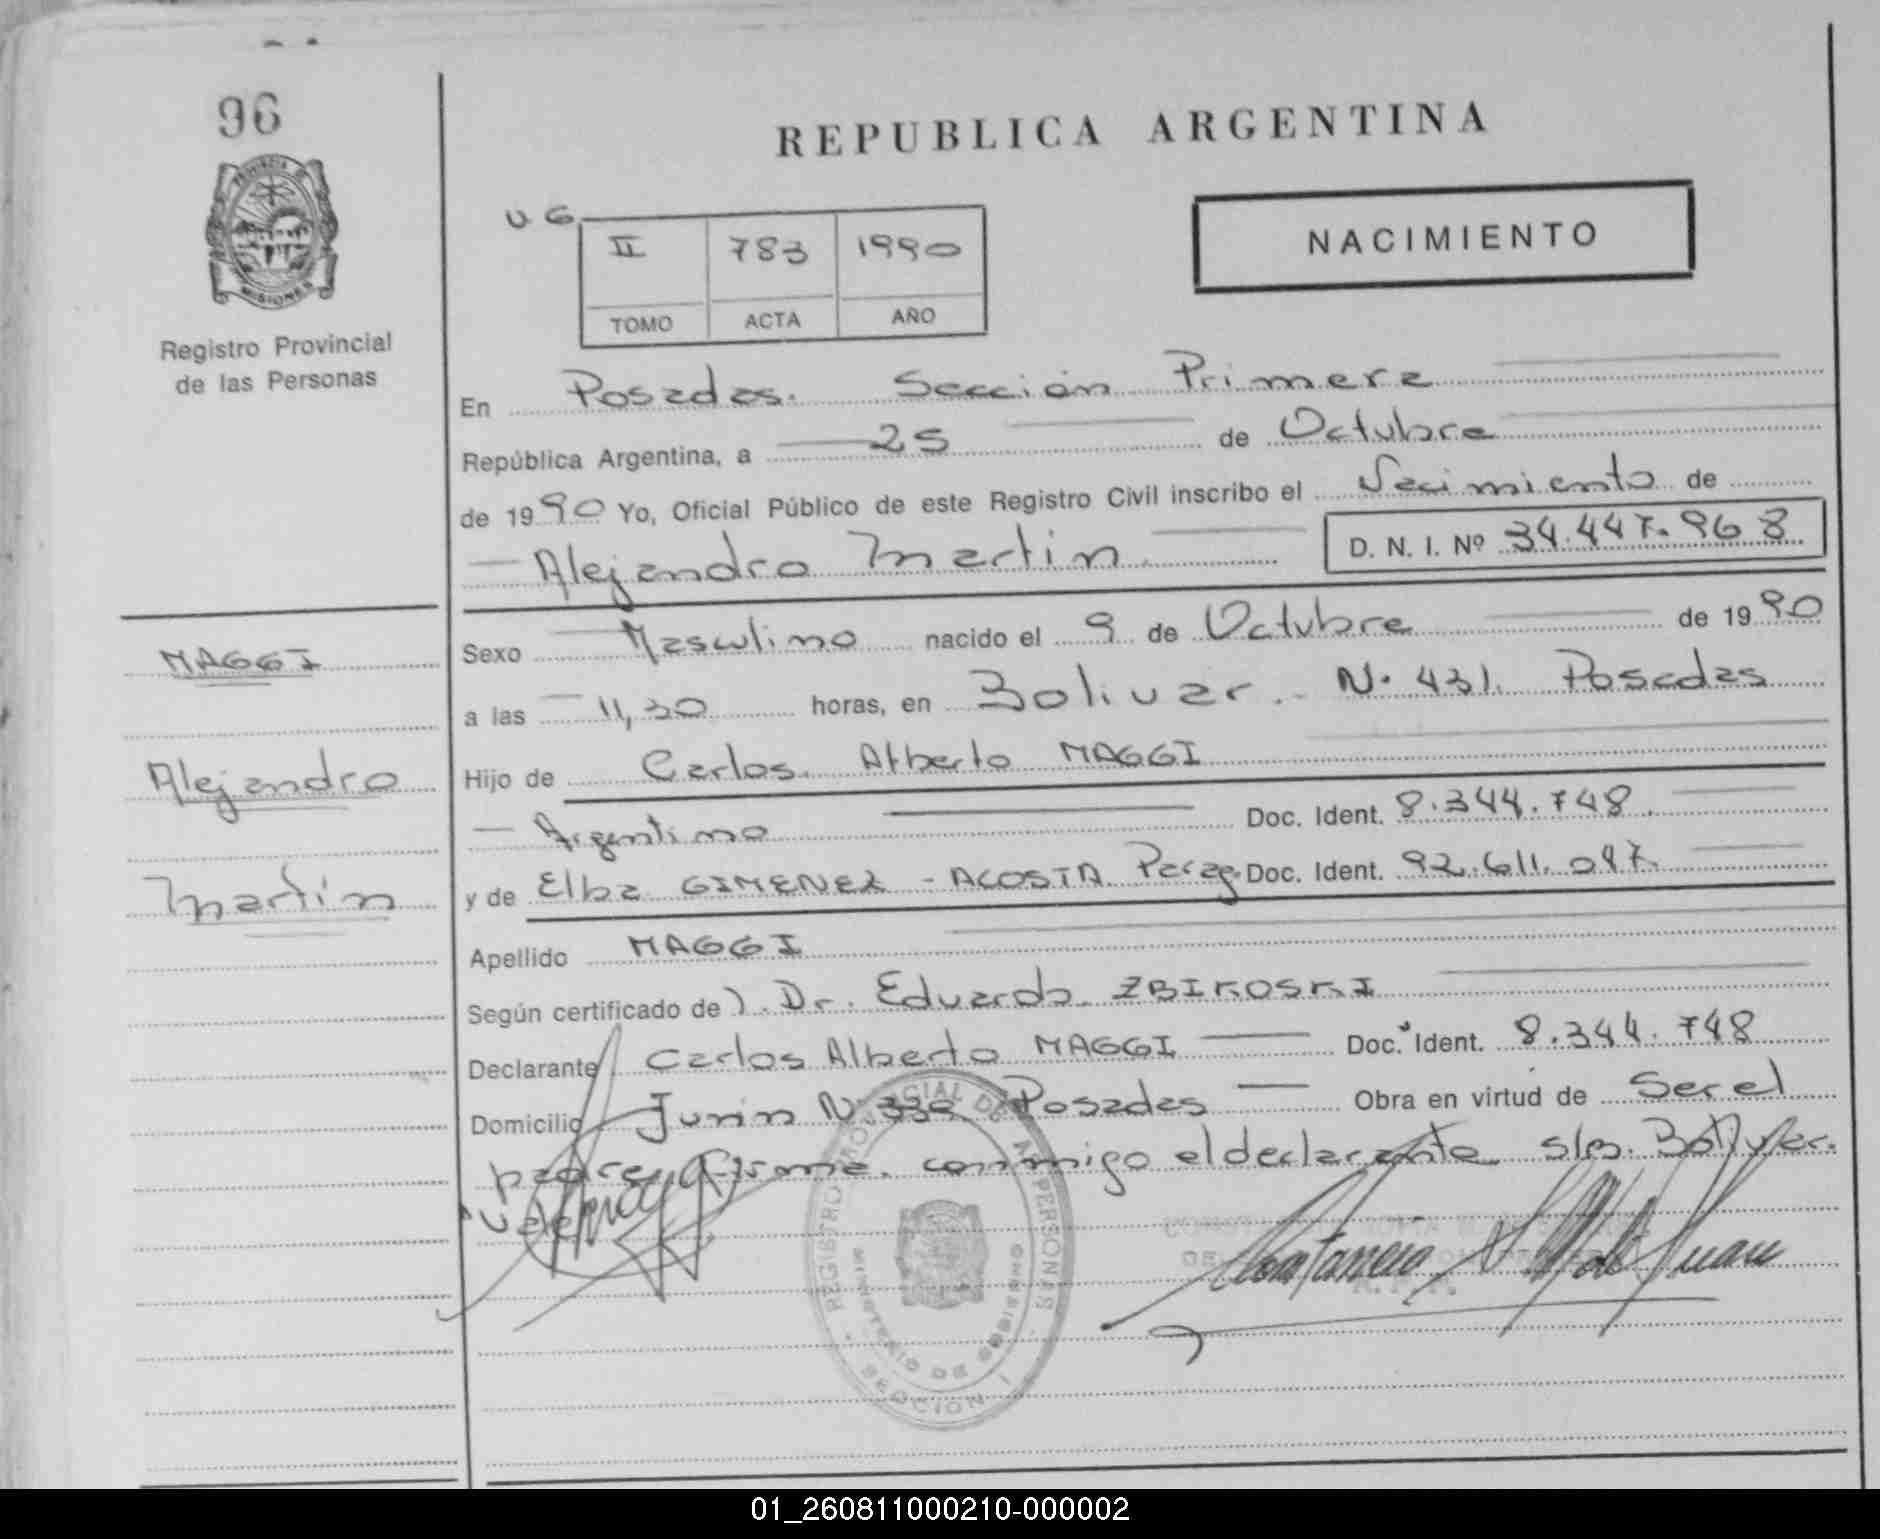 96
PROVINCIA DE
MISIONES
Registro Provincial
de las Personas
MAGGI
Alejandro
Martin
REPUBLICA ARGENTINA
NACIMIENTO
II 783 1990
TOMO ACTA AÑO
En Posadas. Sección Primera
República Argentina, a 25 de Octubre
de 1990 Yo, Oficial Público de este Registro Civil inscribo el Nacimiento de
Alejandro Martin D. N. I. Nº 34.447.968
Sexo Masculino nacido el 9 de Octubre de 1990
a las 11,30 horas, en Bolivar. N. 431. Posadas
Hijo de Carlos Alberto MAGGI
Argentino Doc. Ident. 8.344.748.
y de Elba GIMENEZ - ACOSTA Parag. Doc. Ident. 92.611.047.
Apellido MAGGI
Según certificado de ). Dr. Eduardo ZBIKOSKI
Declarante Carlos Alberto MAGGI Doc. Ident. 8.344.748
Domicilio Junin N 330 Posadas Obra en virtud de Ser el
padre, Firma conmigo el declarante s/b. Bolivar.
Vale
REGISTRO PROVINCIAL DE LAS PERSONAS
MINISTERIO DE GOBIERNO
SECCION I
01_260811000210-000002